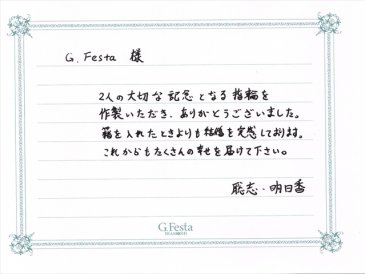 G.Festa 様
2人の大切な記念となる指輪を
作製いただき、ありがとうございました。
籍を入れたときよりも結婚を実感しております。
これからもたくさんの幸せを届けて下さい。
聡志・明日香
G.Festa
DIAMOND